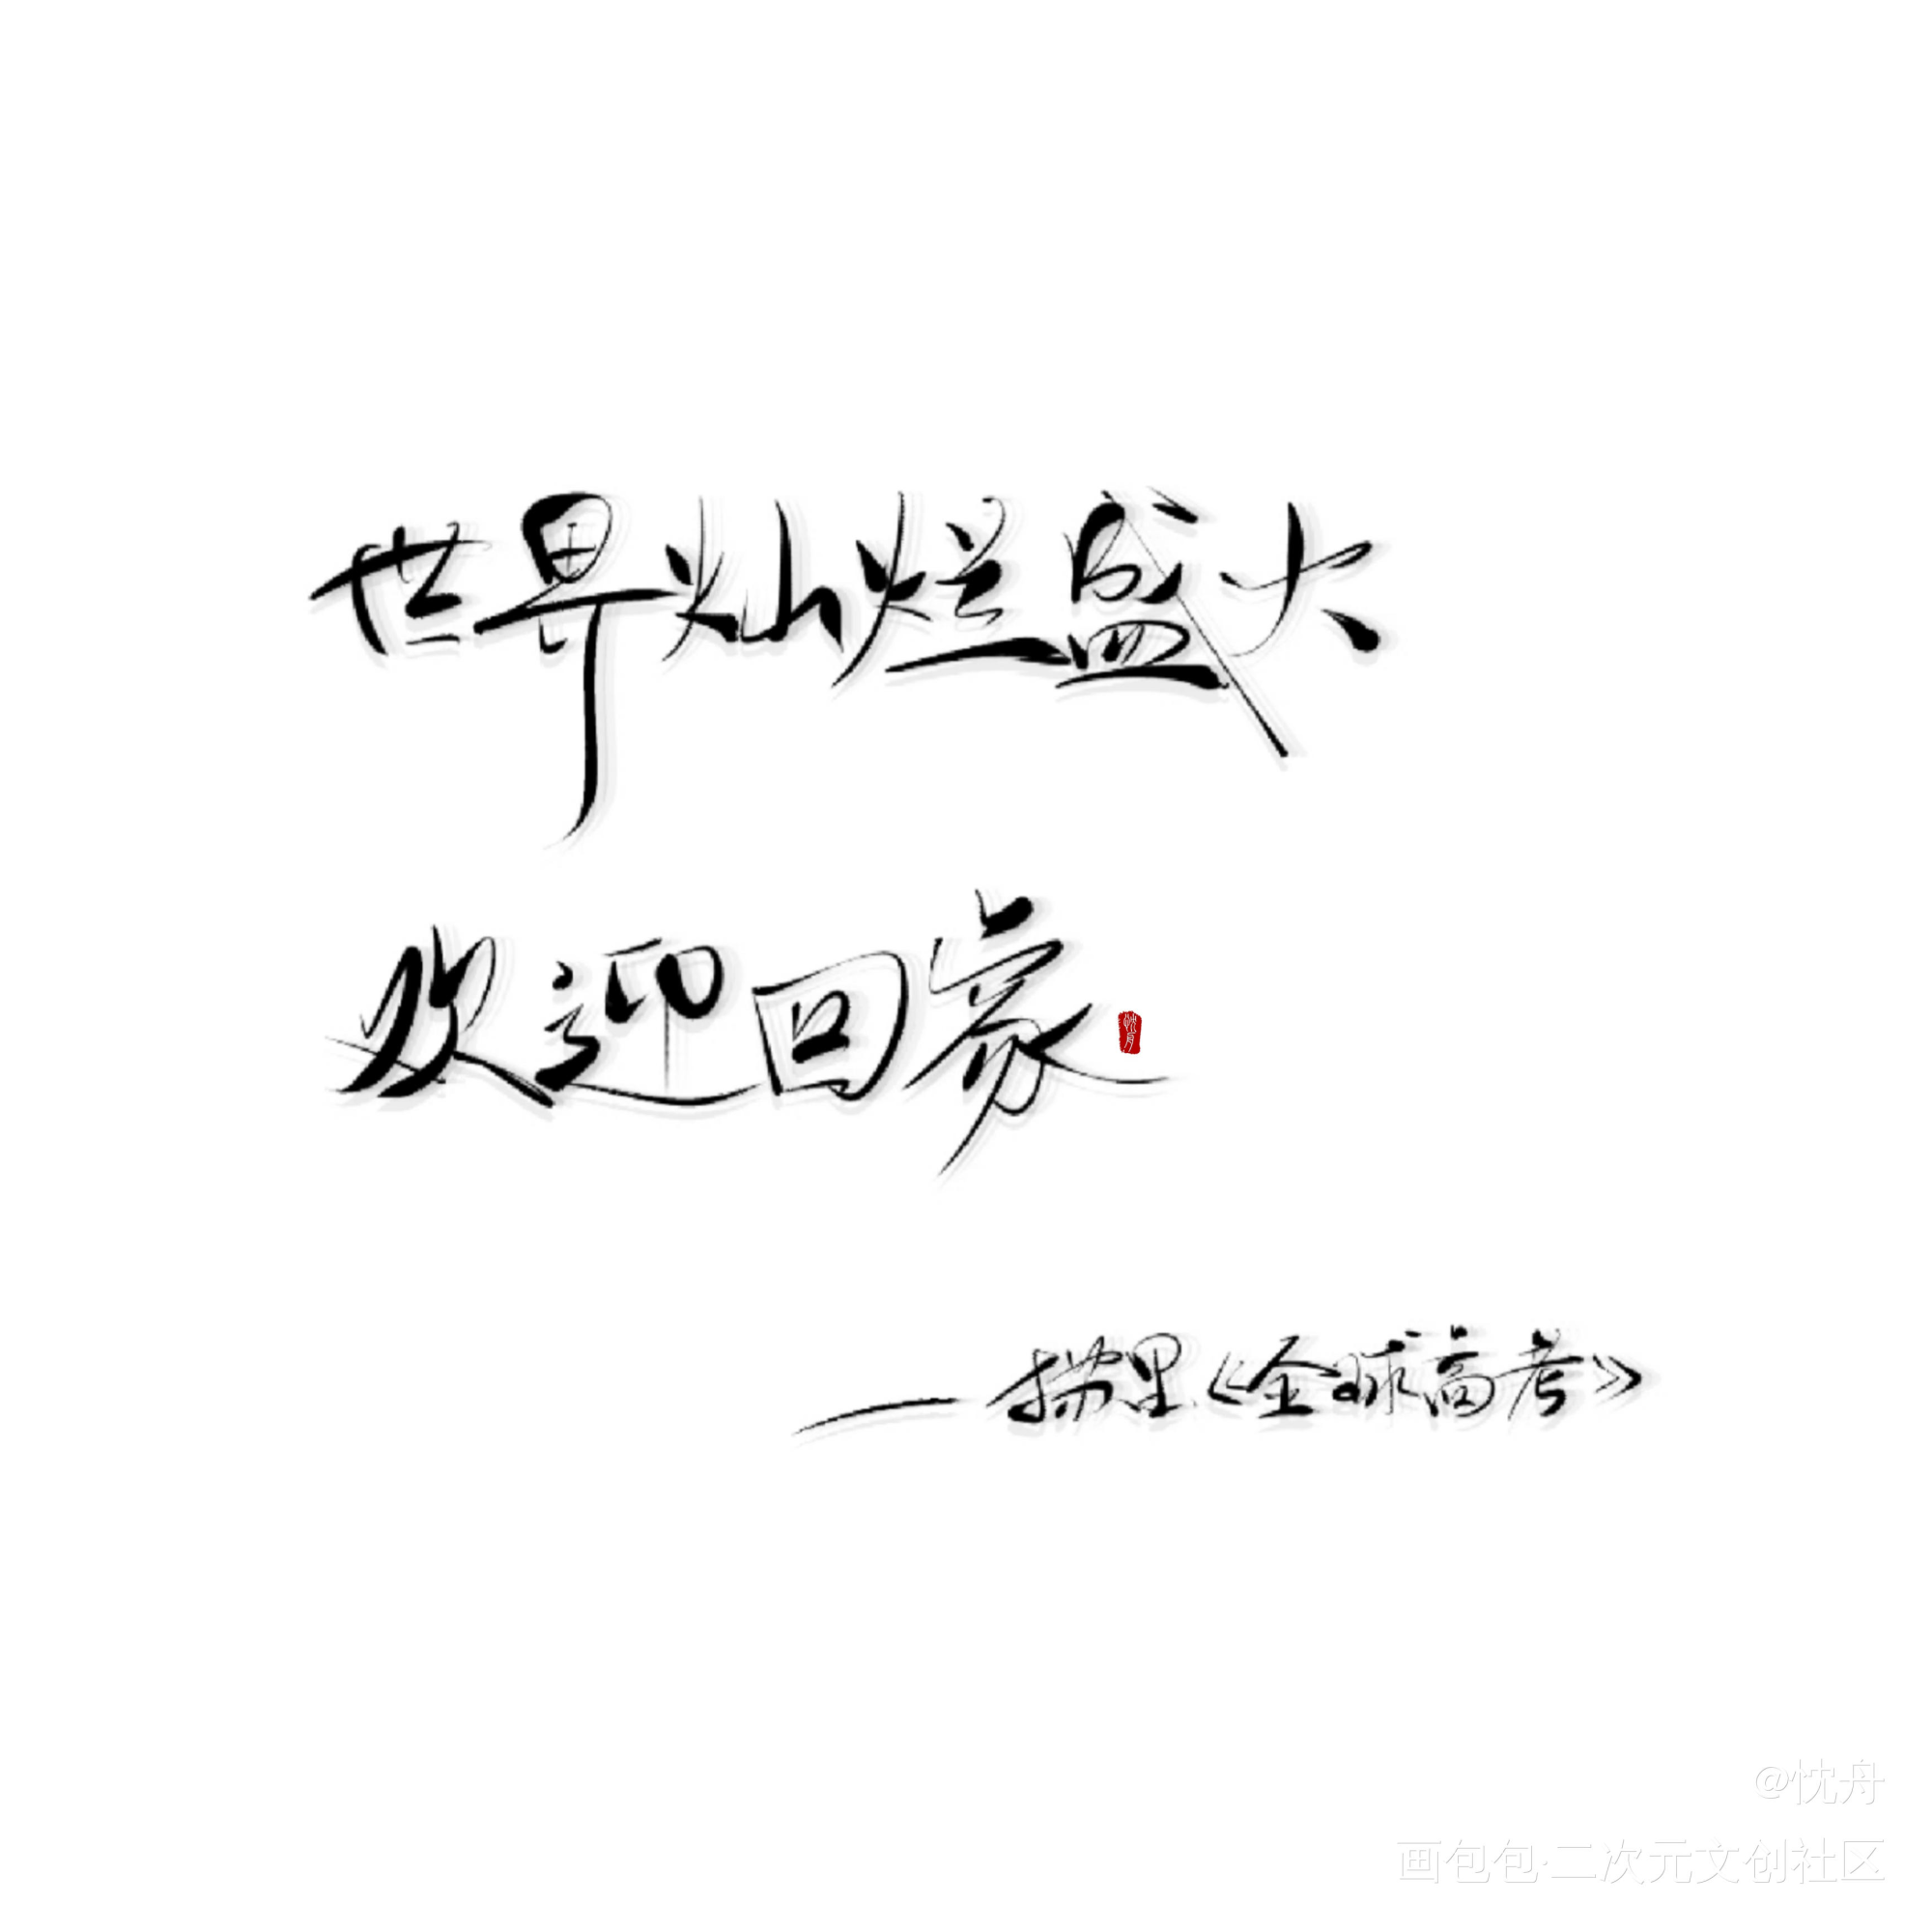 世界灿烂盛大
欢迎回家
—木苏里《全球高考》
@忱舟
画包包·二次元文创社区